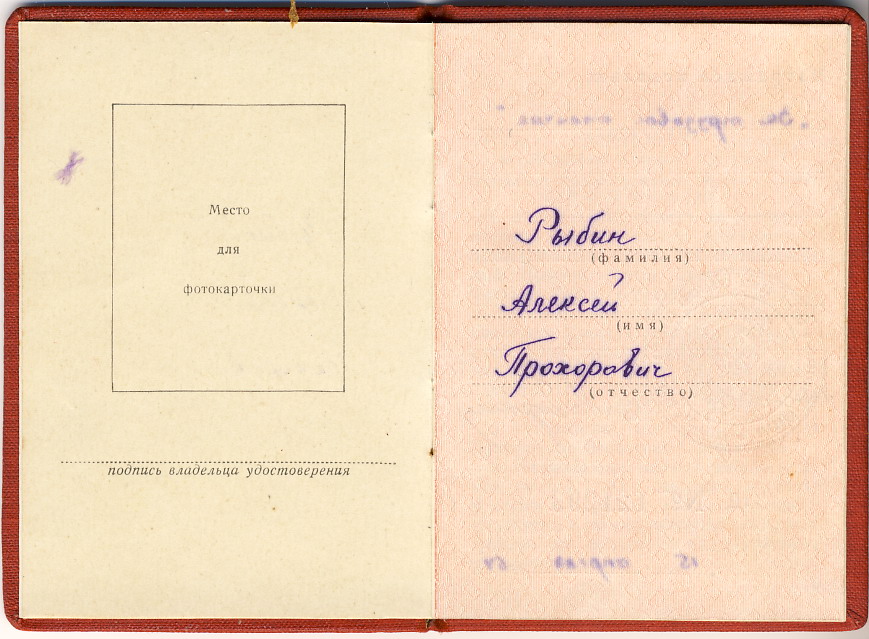 Место
для
фотокарточки
подпись владельца удостоверения
Рыбин
(фамилия)
Алексей
(имя)
Прохорович
(отчество)